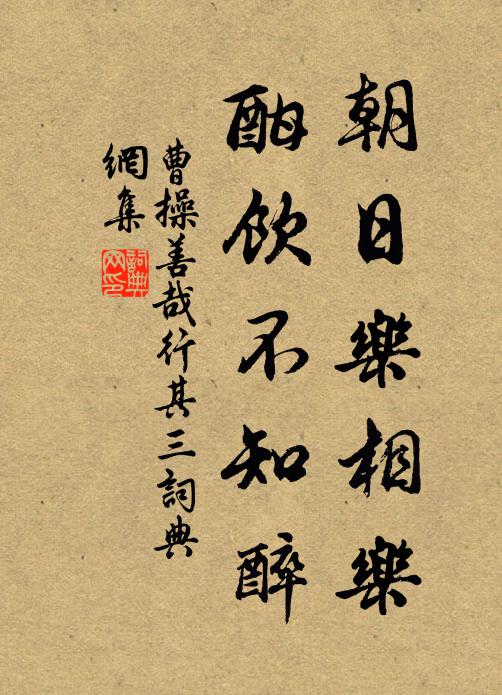 朝日樂相樂
酣飲不知醉
曹操善哉行其三詞典
網集
詞典
网印